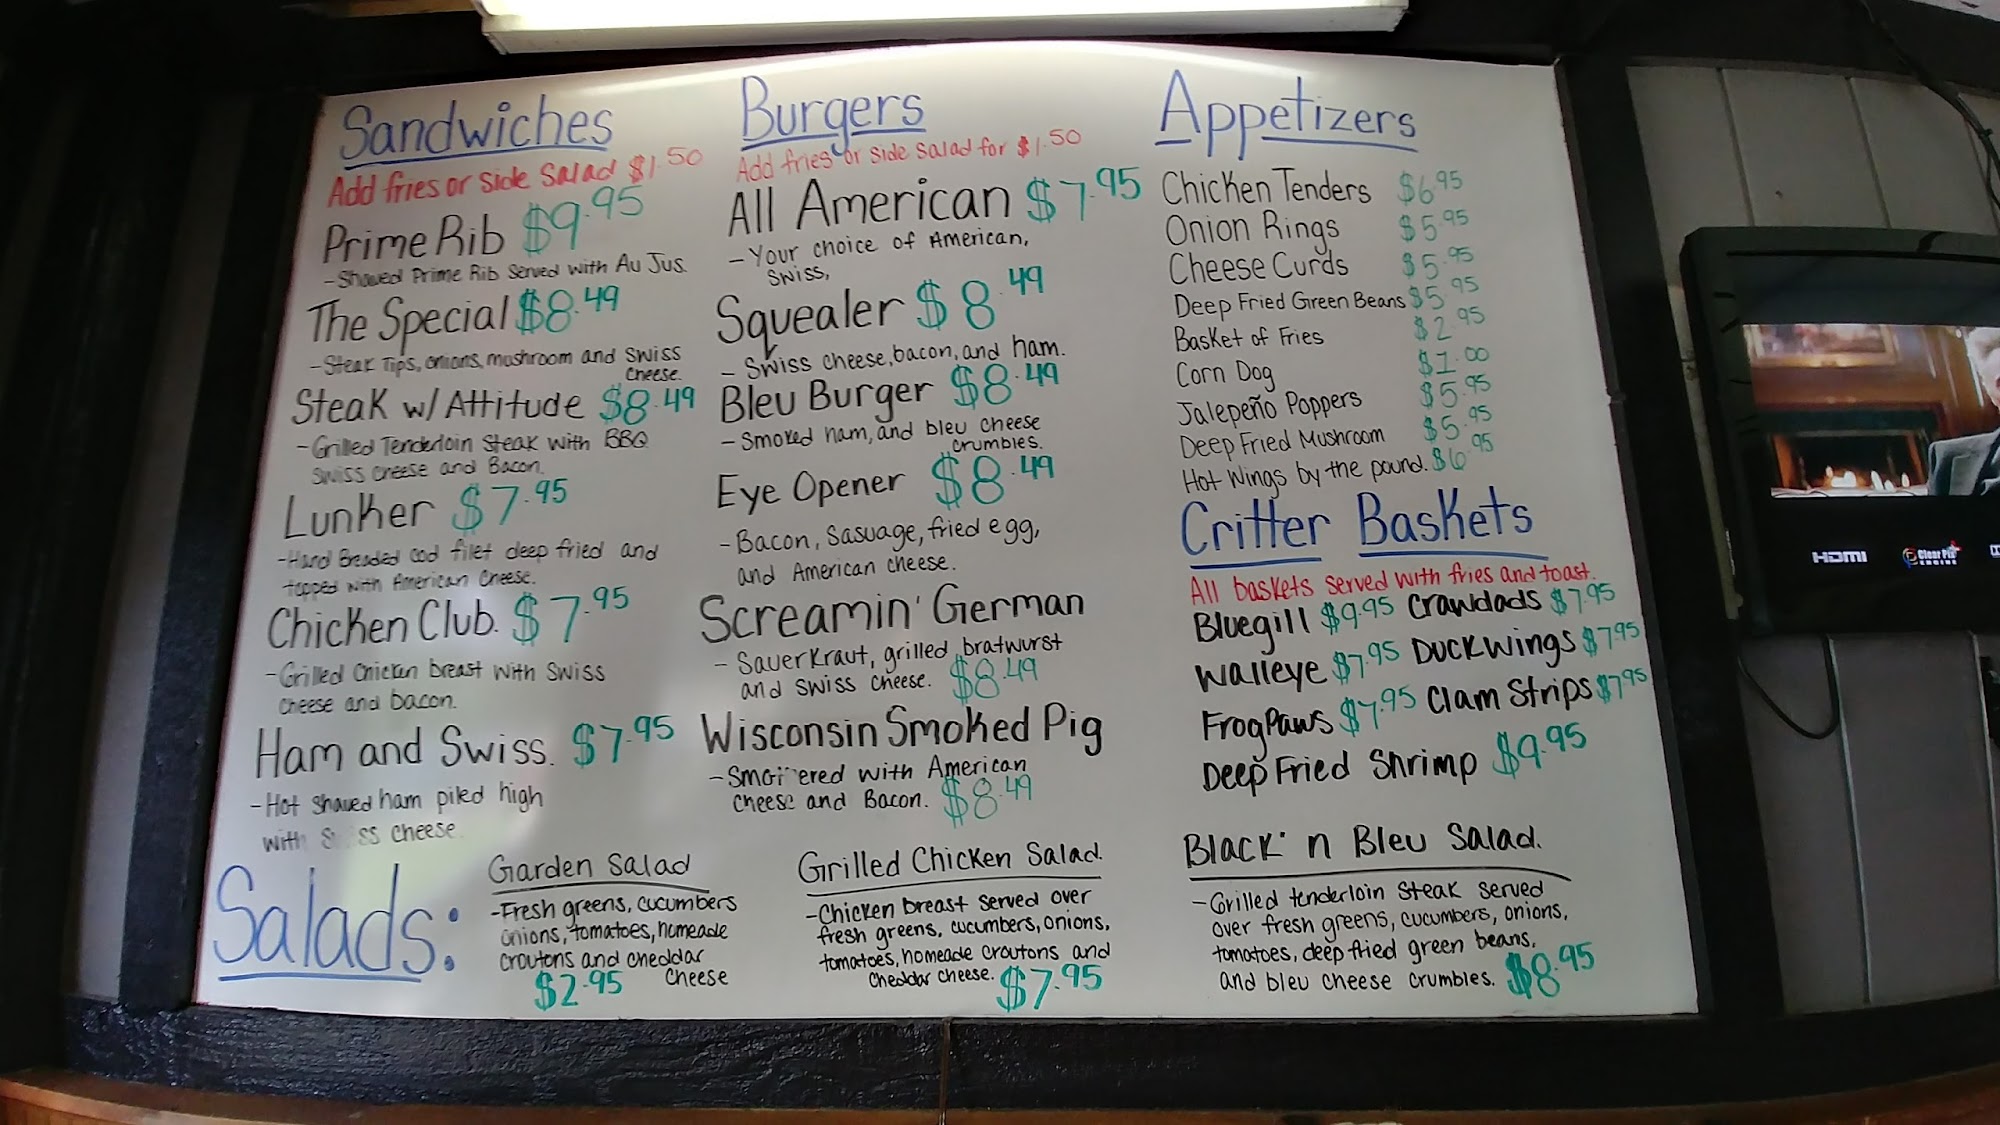 Sandwiches
Add fries or side salad $1.50
Prime Rib $9.95
- Shaved Prime Rib Served with Au Jus.
The Special $8.49
- Steak Tips, onions, mushroom and Swiss
Cheese.
Steak w/ Attitude $8.49
- Grilled Tenderloin Steak with BBQ
Swiss cheese and Bacon.
Lunker $7.95
- Hand Breaded Cod filet deep fried and
topped with American Cheese.
Chicken Club. $7.95
- Grilled Chicken breast with Swiss
Cheese and bacon.
Ham and Swiss. $7.95
- Hot Shaved ham piled high
with Swiss cheese.
Burgers
Add fries or side salad for $1.50
All American $7.95
- Your choice of American,
Swiss,
Squealer $8.49
- Swiss cheese, bacon, and ham.
Bleu Burger $8.49
- Smoked ham, and bleu cheese
crumbles.
Eye Opener $8.49
- Bacon, Sasuage, fried egg,
and American cheese.
Screamin' German
- Sauerkraut, grilled bratwurst
and Swiss cheese. $8.49
Wisconsin Smoked Pig
- Smothered with American
cheese and Bacon. $8.49
Appetizers
Chicken Tenders $6.95
Onion Rings $5.95
Cheese Curds $5.95
Deep Fried Green Beans $5.95
Basket of Fries $2.95
Corn Dog $1.00
Jalepeño Poppers $5.95
Deep Fried Mushroom $5.95
Hot Wings by the pound. $6.95
Critter Baskets
All baskets served with fries and toast.
Bluegill $9.95 Crawdads $7.95
Walleye $7.95 Duck Wings $7.95
Frog Paws $7.95 Clam Strips $7.95
Deep Fried Shrimp $9.95
Salads:
Garden Salad
- Fresh greens, cucumbers
onions, tomatoes, homeade
croutons and cheddar
cheese
$2.95
Grilled Chicken Salad.
- Chicken breast served over
fresh greens, cucumbers, onions,
tomatoes, homeade croutons and
Cheddar cheese. $7.95
Black 'n Bleu Salad.
- Grilled tenderloin steak served
over fresh greens, cucumbers, onions,
tomatoes, deep fried green beans,
and bleu cheese crumbles. $8.95
HDMI
Clear Pix
ENGINE